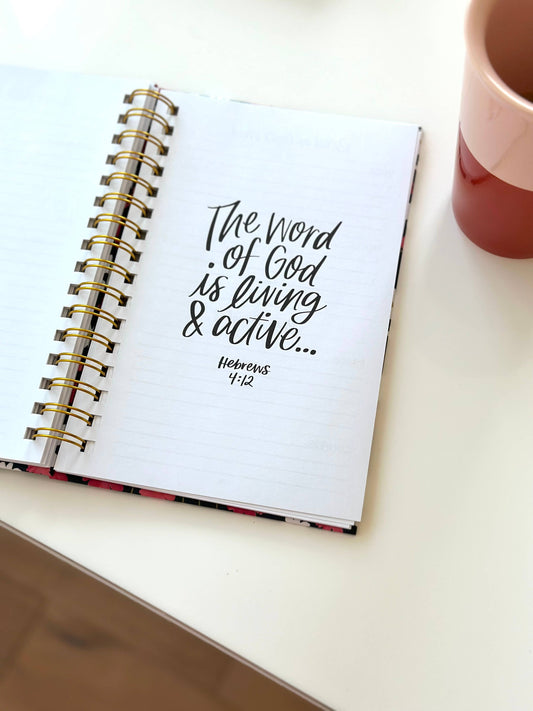 The Word
of God
is living
& active...
Hebrews
4:12